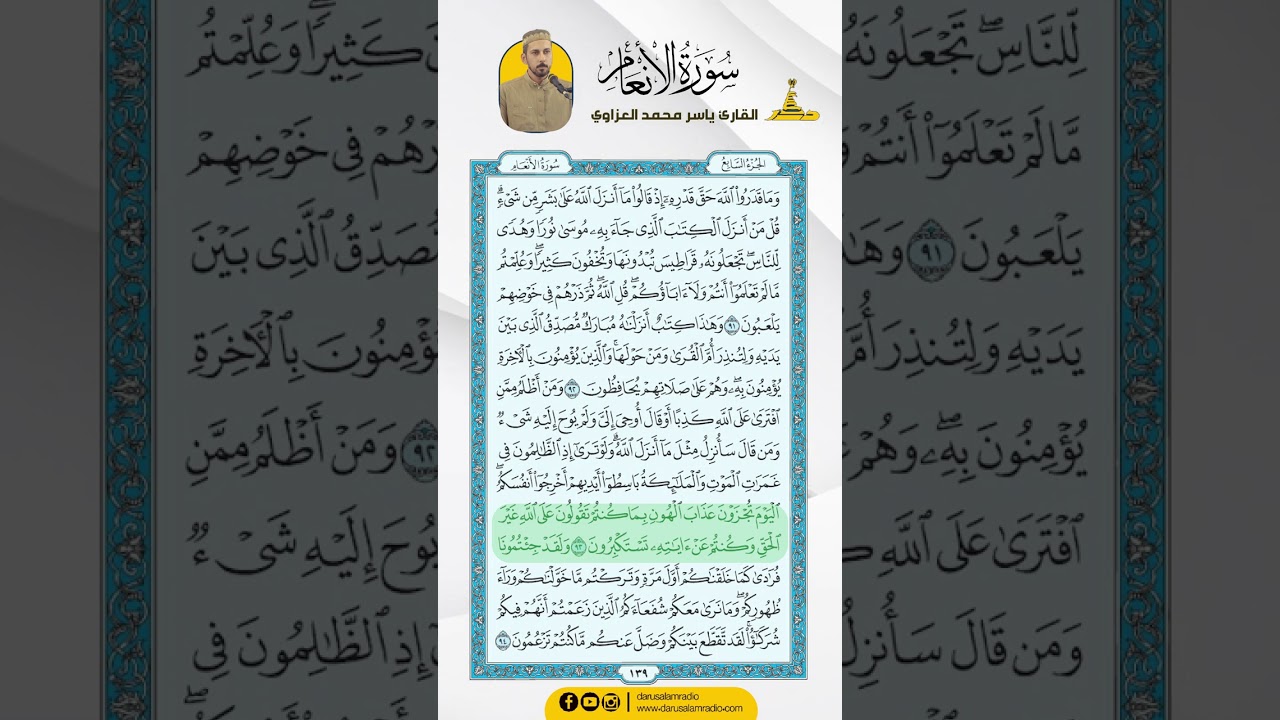 سُورَةُ الأَنْعَام
القارئ ياسر محمد العزاوي
الجُزْءُ السَّابِعُ
سُورَةُ الأَنْعَامِ
وَمَا قَدَرُوا۟ ٱللَّهَ حَقَّ قَدْرِهِۦٓ إِذْ قَالُوا۟ مَآ أَنزَلَ ٱللَّهُ عَلَىٰ بَشَرٍ مِّن شَىْءٍ ۗ
قُلْ مَنْ أَنزَلَ ٱلْكِتَـٰبَ ٱلَّذِى جَآءَ بِهِۦ مُوسَىٰ نُورًا وَهُدًى
لِّلنَّاسِ ۖ تَجْعَلُونَهُۥ قَرَاطِيسَ تُبْدُونَهَا وَتُخْفُونَ كَثِيرًا ۖ وَعُلِّمْتُم
مَّا لَمْ تَعْلَمُوٓا۟ أَنتُمْ وَلَآ ءَابَآؤُكُمْ ۖ قُلِ ٱللَّهُ ۖ ثُمَّ ذَرْهُمْ فِى خَوْضِهِمْ
يَلْعَبُونَ ٩١ وَهَـٰذَا كِتَـٰبٌ أَنزَلْنَـٰهُ مُبَارَكٌ مُّصَدِّقُ ٱلَّذِى بَيْنَ
يَدَيْهِ وَلِتُنذِرَ أُمَّ ٱلْقُرَىٰ وَمَنْ حَوْلَهَا ۚ وَٱلَّذِينَ يُؤْمِنُونَ بِٱلْـَٔاخِرَةِ
يُؤْمِنُونَ بِهِۦ ۖ وَهُمْ عَلَىٰ صَلَاتِهِمْ يُحَافِظُونَ ٩٢ وَمَنْ أَظْلَمُ مِمَّنِ
ٱفْتَرَىٰ عَلَى ٱللَّهِ كَذِبًا أَوْ قَالَ أُوحِىَ إِلَىَّ وَلَمْ يُوحَ إِلَيْهِ شَىْءٌ
وَمَن قَالَ سَأُنزِلُ مِثْلَ مَآ أَنزَلَ ٱللَّهُ ۗ وَلَوْ تَرَىٰٓ إِذِ ٱلظَّـٰلِمُونَ فِى
غَمَرَٰتِ ٱلْمَوْتِ وَٱلْمَلَـٰٓئِكَةُ بَاسِطُوٓا۟ أَيْدِيهِمْ أَخْرِجُوٓا۟ أَنفُسَكُمُ ۖ
ٱلْيَوْمَ تُجْزَوْنَ عَذَابَ ٱلْهُونِ بِمَا كُنتُمْ تَقُولُونَ عَلَى ٱللَّهِ غَيْرَ
ٱلْحَقِّ وَكُنتُمْ عَنْ ءَايَـٰتِهِۦ تَسْتَكْبِرُونَ ٩٣ وَلَقَدْ جِئْتُمُونَا
فُرَٰدَىٰ كَمَا خَلَقْنَـٰكُمْ أَوَّلَ مَرَّةٍ وَتَرَكْتُم مَّا خَوَّلْنَـٰكُمْ وَرَآءَ
ظُهُورِكُمْ ۖ وَمَا نَرَىٰ مَعَكُمْ شُفَعَآءَكُمُ ٱلَّذِينَ زَعَمْتُمْ أَنَّهُمْ فِيكُمْ
شُرَكَـٰٓؤُا۟ ۚ لَقَد تَّقَطَّعَ بَيْنَكُمْ وَضَلَّ عَنكُم مَّا كُنتُمْ تَزْعُمُونَ ٩٤
١٣٩
darusalamradio
www.darusalamradio.com